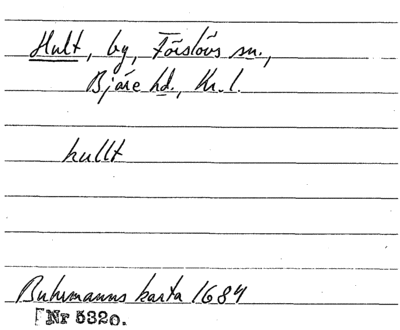 Hult, by, Förslövs sn.,
Bjäre hd., Kr. l.
hullt
Buhrmanns karta 1684
[Nr 5320.